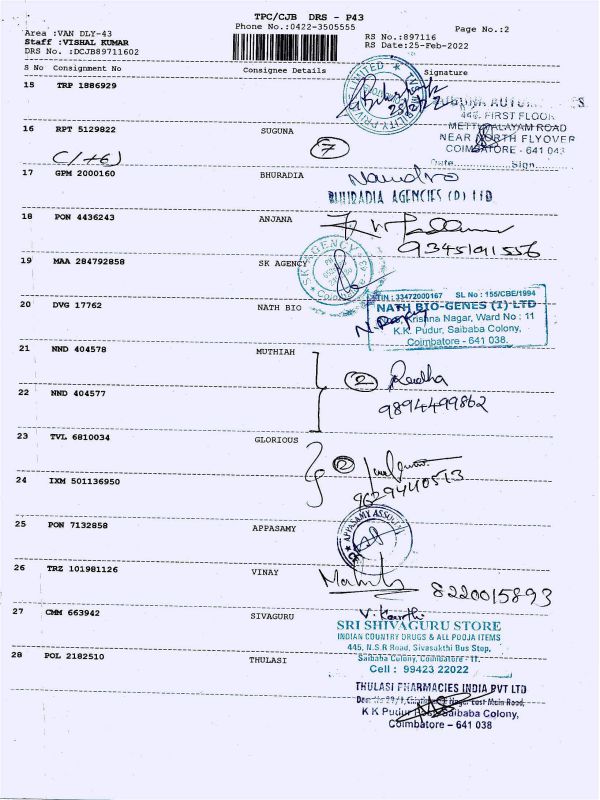 TPC/CJB DRS - P43
Phone No.:0422-3505555
Page No.:2
Area :VAN DLY-43
Staff :VISHAL KUMAR
DRS No. :DCJB89711602
RS No.:897116
RS Date:25-Feb-2022
S No Consignment No Consignee Details Signature
15 TRP 1886929
445, FIRST FLOOR
METTUPALAYAM ROAD
16 RPT 5129822 SUGUNA 7
NEAR NORTH FLYOVER
COIMBATORE - 641 043
Date Sign
C/+6)
17 GPM 2000160 BHURADIA
BHURADIA AGENCIES (P) LTD
18 PON 4436243 ANJANA
9345191556
19 MAA 284792858 SK AGENCY
SK AGENCY
TIN : 33472000167 SL No : 155/CBE/1994
20 DVG 17762 NATH BIO
NATH BIO-GENES (I) LTD
Krishna Nagar, Ward No : 11
K.K. Pudur, Saibaba Colony,
Coimbatore - 641 038.
21 NND 404578 MUTHIAH
2 Radha
22 NND 404577
9894499862
23 TVL 6810034 GLORIOUS
2
24 IXM 501136950
9629440513
25 PON 7132858 APPASAMY
26 TRZ 101981126 VINAY
8220015893
27 CMM 663942 SIVAGURU
V. Karthi
SRI SHIVAGURU STORE
INDIAN COUNTRY DRUGS & ALL POOJA ITEMS
445, N.S.R Road, Sivasakthi Bus Stop,
Saibaba Colony, Coimbatore - 11.
Cell : 99423 22022
28 POL 2182510 THULASI
THULASI PHARMACIES INDIA PVT LTD
Nagar East Main Road,
K K Pudur Saibaba Colony,
Coimbatore – 641 038